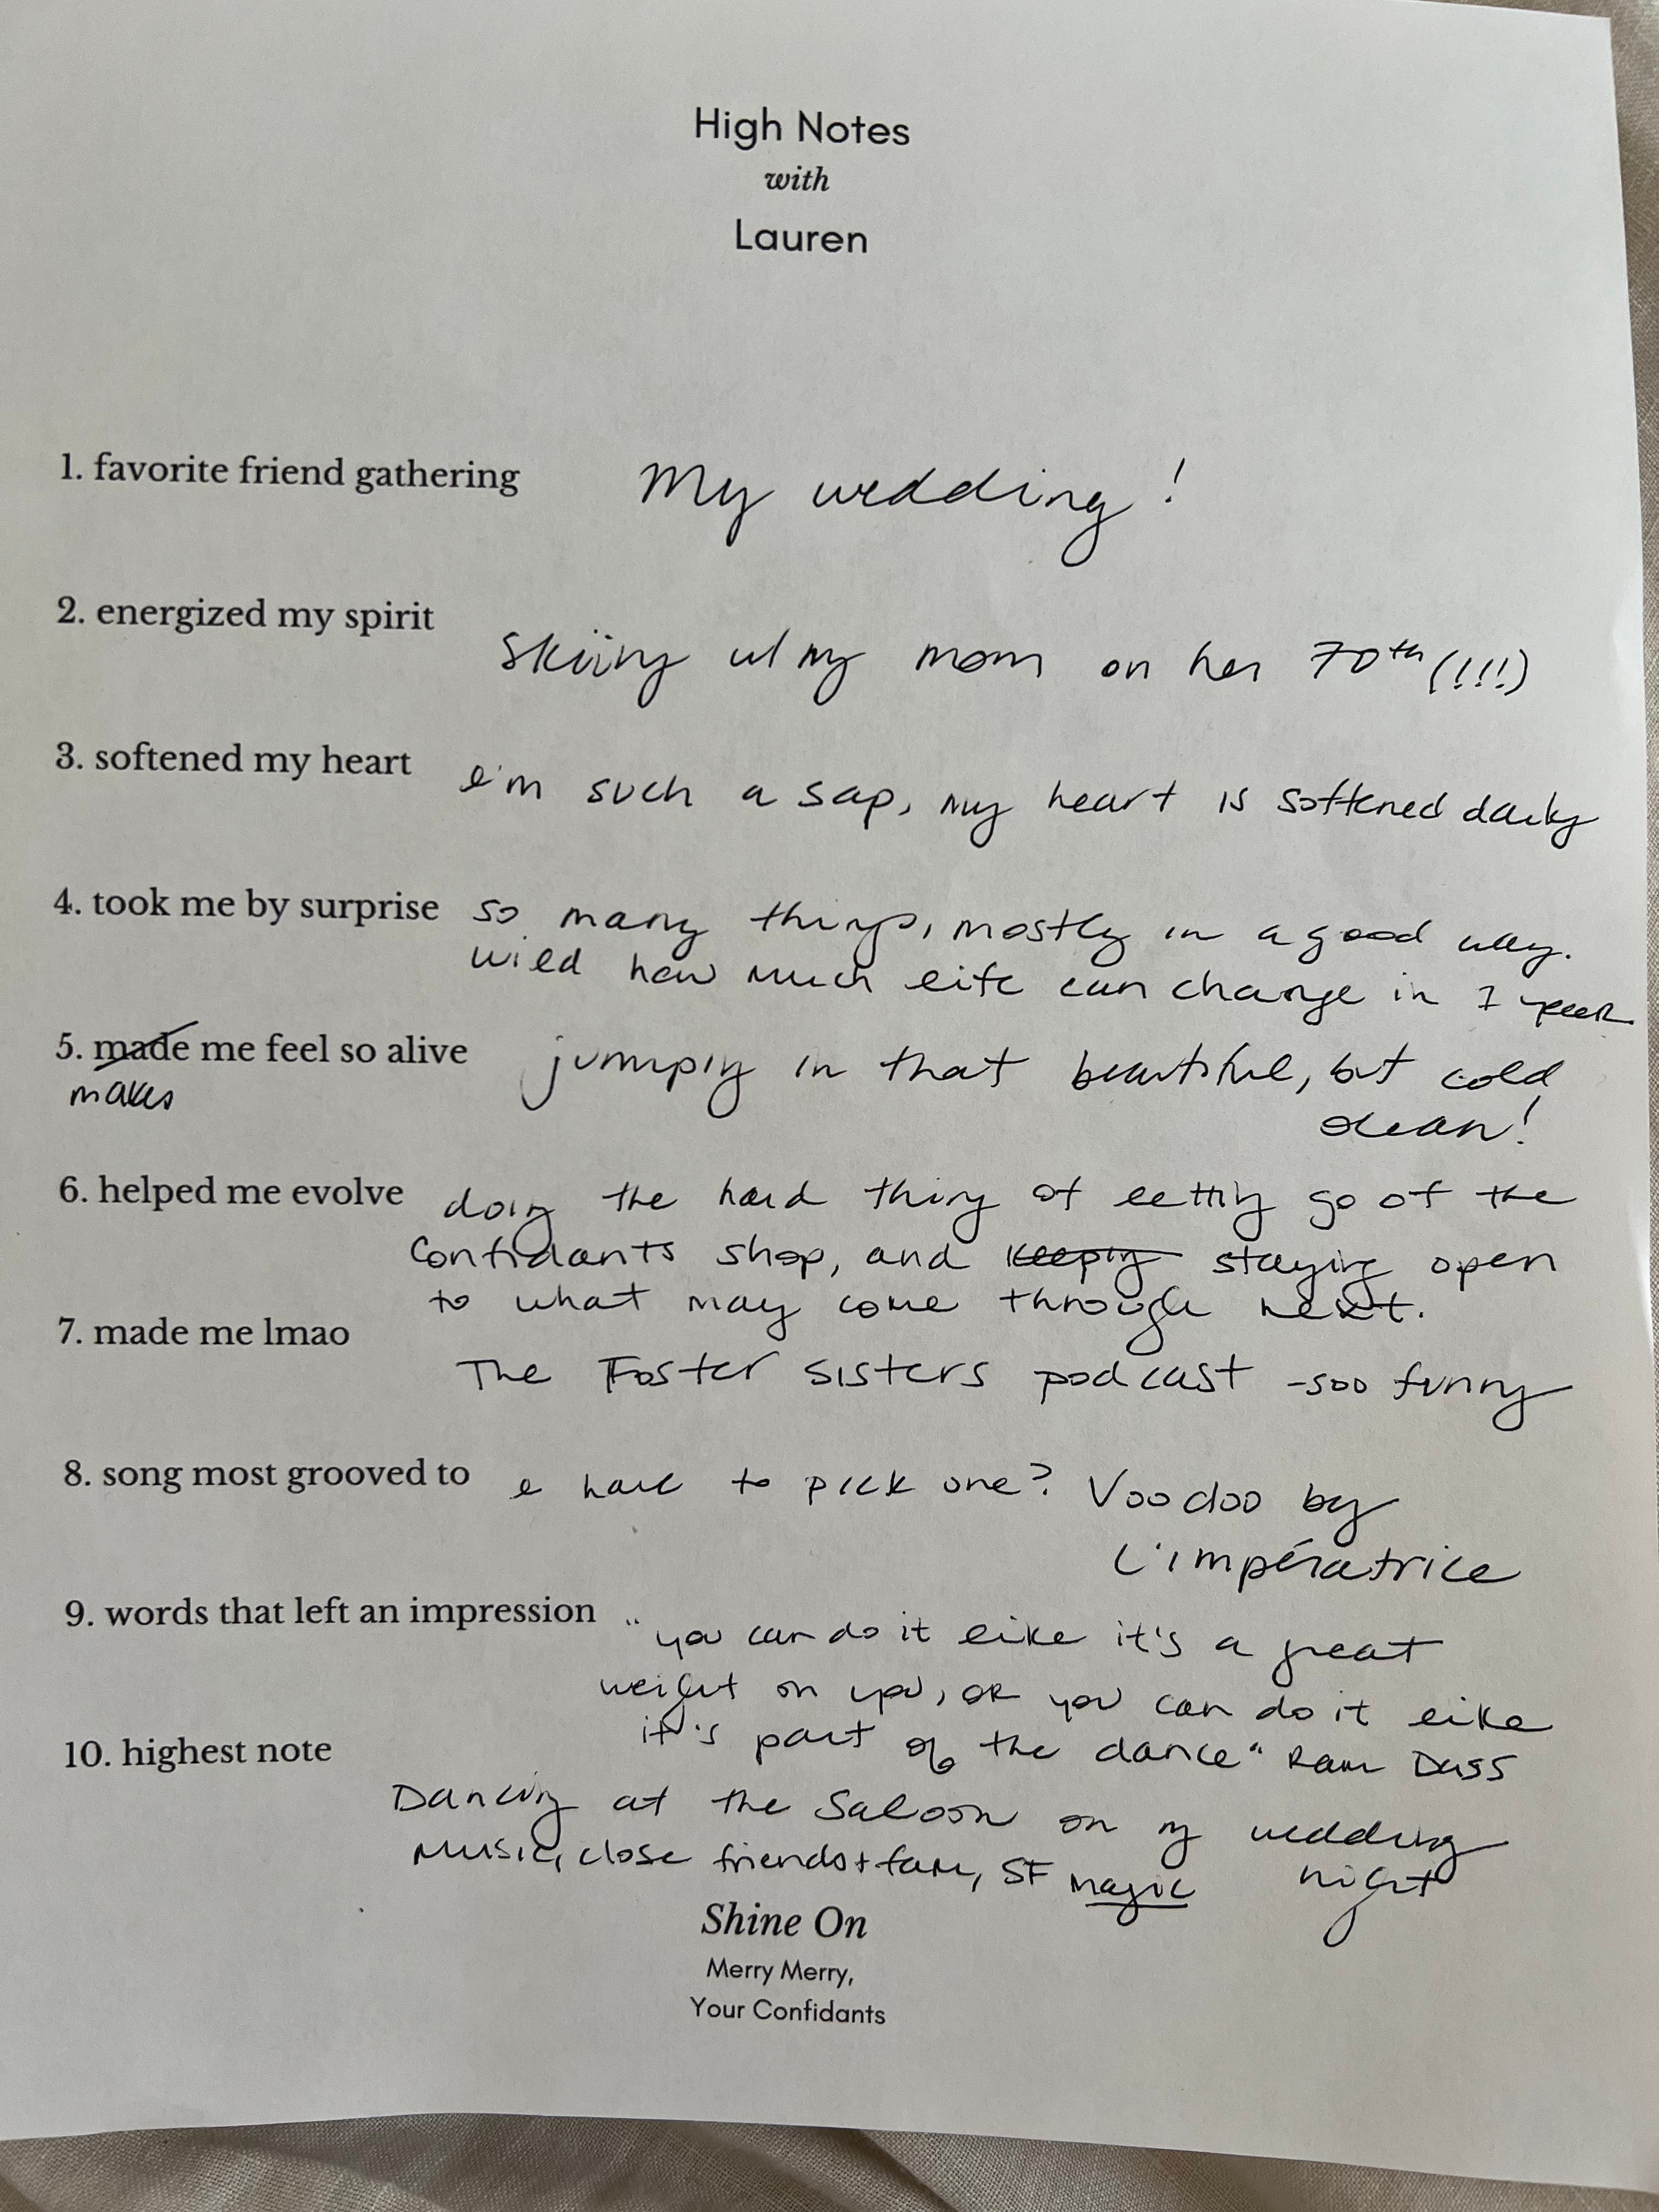 High Notes
with
Lauren
1. favorite friend gathering My wedding!
2. energized my spirit
skiing w/ my mom on her 70th (!!!)
3. softened my heart I'm such a sap, my heart is softened daily
4. took me by surprise so many things, mostly in a good way.
wild how much life can change in 1 year
5. made me feel so alive jumping in that beautiful, but cold
makes
ocean!
6. helped me evolve doing the hard thing of letting go of the
Confidants shop, and keeping staying open
to what may come through next.
7. made me lmao
The Foster Sisters podcast - soo funny
8. song most grooved to I have to pick one? Voodoo by
L'impératrice
9. words that left an impression "you can do it like it's a great
weight on you, or you can do it like
it's part of the dance" Ram Dass
10. highest note
Dancing at the Saloon on my wedding
night
Music, close friends + fam, SF magic
Shine On
Merry Merry,
Your Confidants